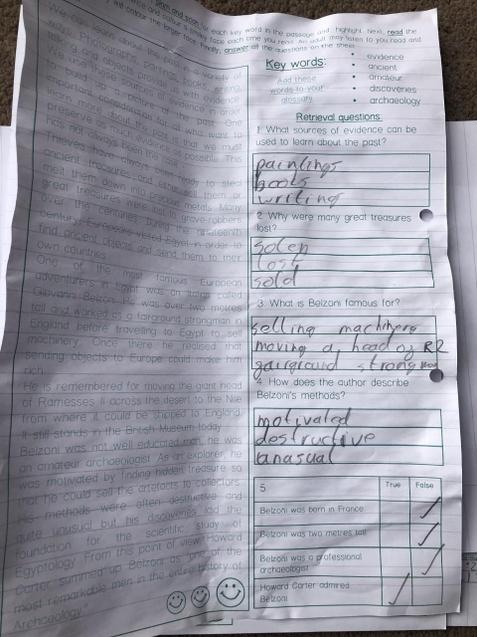 Skim and scan for each key word in the passage and highlight. Next, read the
will colour the larger face. Finally, answer all the questions on the sheet.
Key words:
Add these
words to your
glossary
• evidence
• ancient
• amateur
• discoveries
• archaeology
We
can learn about the past in a variety of
ways. Photographs, paintings, books, writing
objects provide
evidence
picture of the past. One
important consideration for all who want to
about the past is that we must
preserve as
evidence as possible. This
has not always been the
ancient treasures and either sell them or
melt them down into precious metals. Many
great treasures were lost to grave-robbers
over the centuries. During the nineteenth
century, Europeans visited Egypt in order to
find ancient objects and send them to their
own countries.
One of the most famous European
adventurers in Egypt was an Italian called
Giovanni Belzoni. He was over two metres
tall and worked as a fairground strongman in
England before travelling to Egypt to sell
machinery. Once there he realised that
sending objects to Europe could make him
rich.
He is remembered for moving the giant head
of Ramesses II across the desert to the Nile
from where it could be shipped to England.
It still stands in the British Museum today.
Belzoni was not well educated man, he was
an amateur archaeologist. As an explorer, he
was motivated by finding hidden treasure so
that he could sell the artefacts to collectors.
His methods were often destructive and
quite unusual but his discoveries laid the
foundation for the scientific study of
Egyptology. From this point of view, Howard
Carter summed up Belzoni as "one of the
most remarkable men in the entire history of
Archaeology."
Retrieval questions
1 What sources of evidence can be
used to learn about the past?
paintings
books
writing
2. Why were many great treasures
lost?
solen
lost
sold
3. What is Belzoni famous for?
selling machinery
moving a head of R2
gairground strongman
4. How does the author describe
Belzoni's methods?
motivated
destructive
unasual
5 True False
Belzoni was born in France
Belzoni was two metres tall
Belzoni was a professional
archaeologist
Howard Carter admired
Belzoni